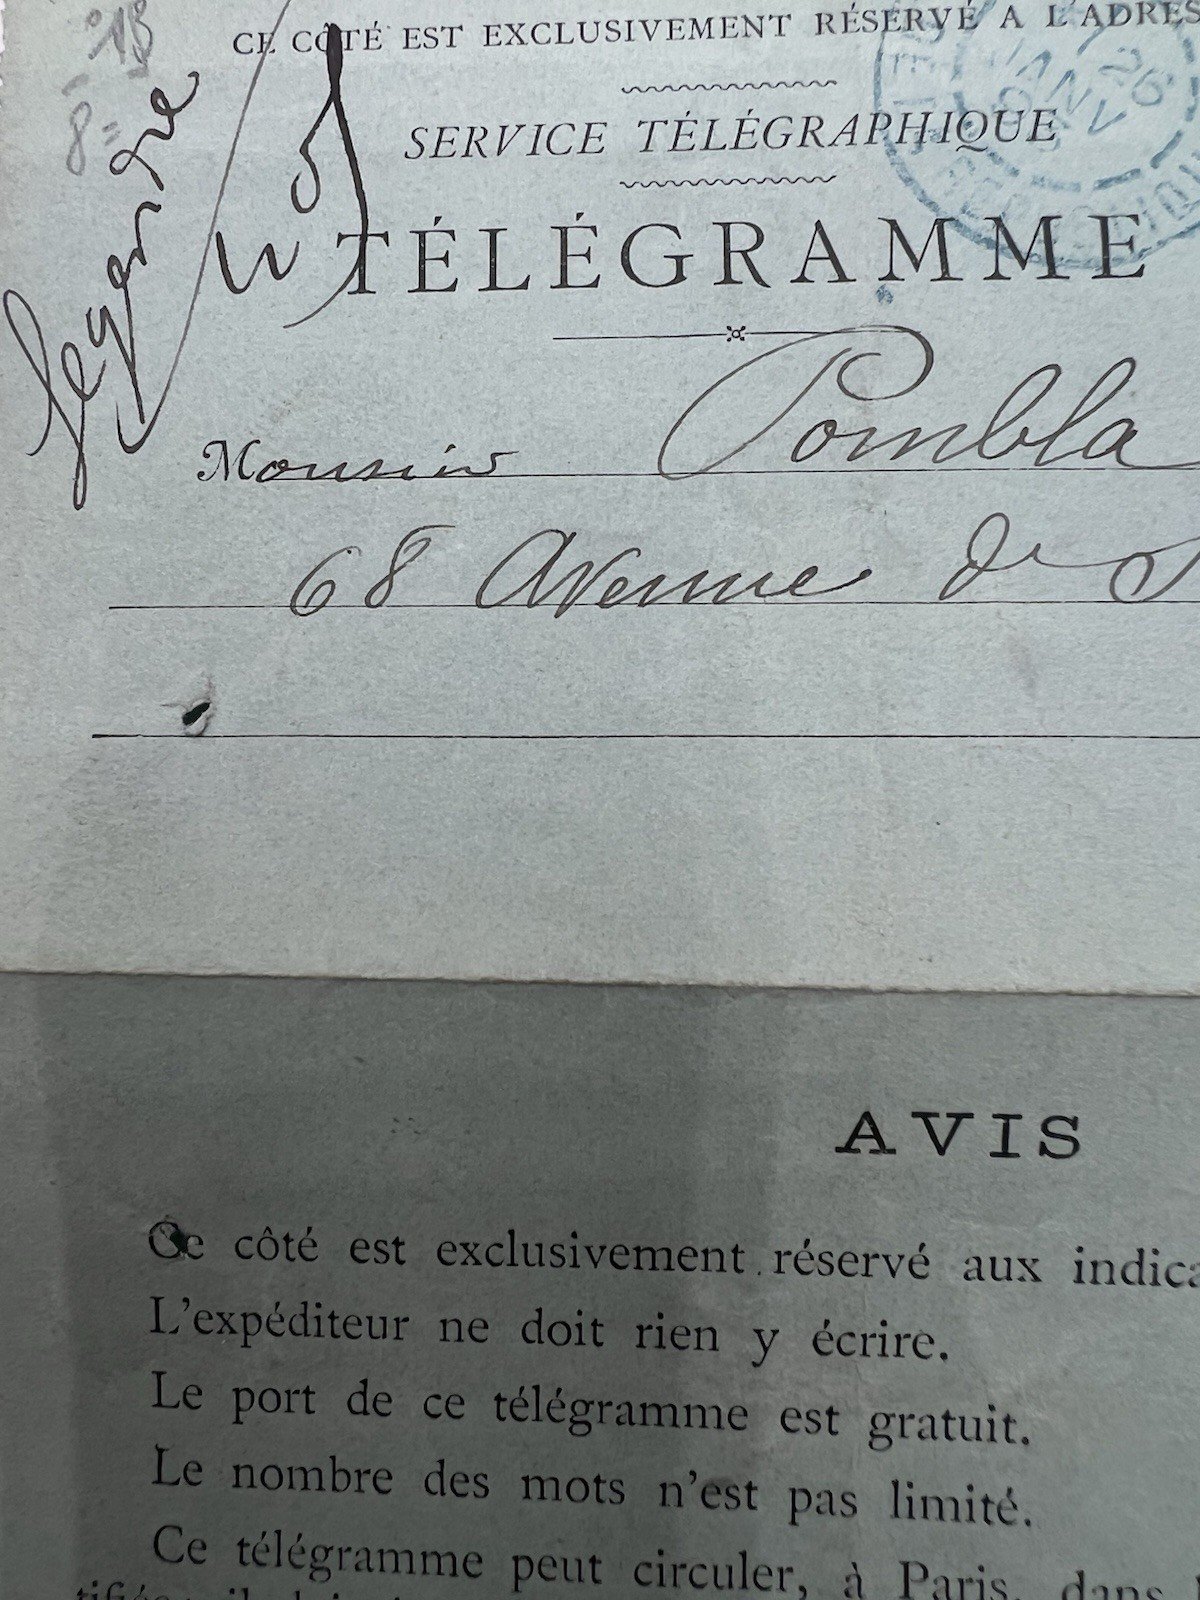 CE CÔTÉ EST EXCLUSIVEMENT RÉSERVÉ A L'ADRES
SERVICE TÉLÉGRAPHIQUE
JANV
26
TÉLÉGRAMME
Monsieur Pombla
68 Avenue de S
AVIS
Ce côté est exclusivement réservé aux indica
L'expéditeur ne doit rien y écrire.
Le port de ce télégramme est gratuit.
Le nombre des mots n'est pas limité.
Ce télégramme peut circuler, à Paris, dans